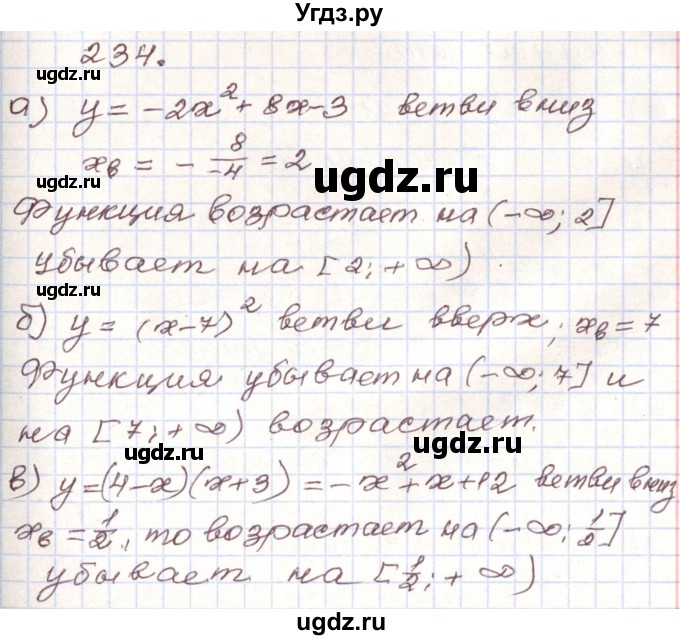 Угдз.ру
234.
ugdz.ru ugdz.ru
а) y = -2x² + 8x - 3 ветви вниз
xв = - 8/-4 = 2
ugdz.ru ugdz.ru ugdz.ru
Функция возрастает на (-∞; 2]
убывает на [2; +∞).
ugdz.ru ugdz.ru
б) y = (x-7)² ветви вверх, xв = 7
Функция убывает на (-∞; 7] и
на [7; +∞) возрастает.
ugdz.ru ugdz.ru
в) y = (4-x)(x+3) = -x² + x + 12 ветви вниз
xв = 1/2, то возрастает на (-∞; 1/2]
убывает на [1/2; +∞)
ugdz.ru ugdz.ru